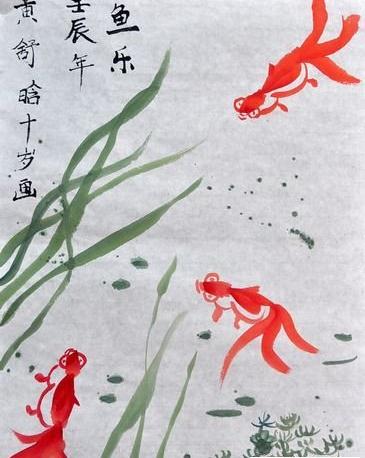 鱼乐
壬辰年
黄舒晗十岁画